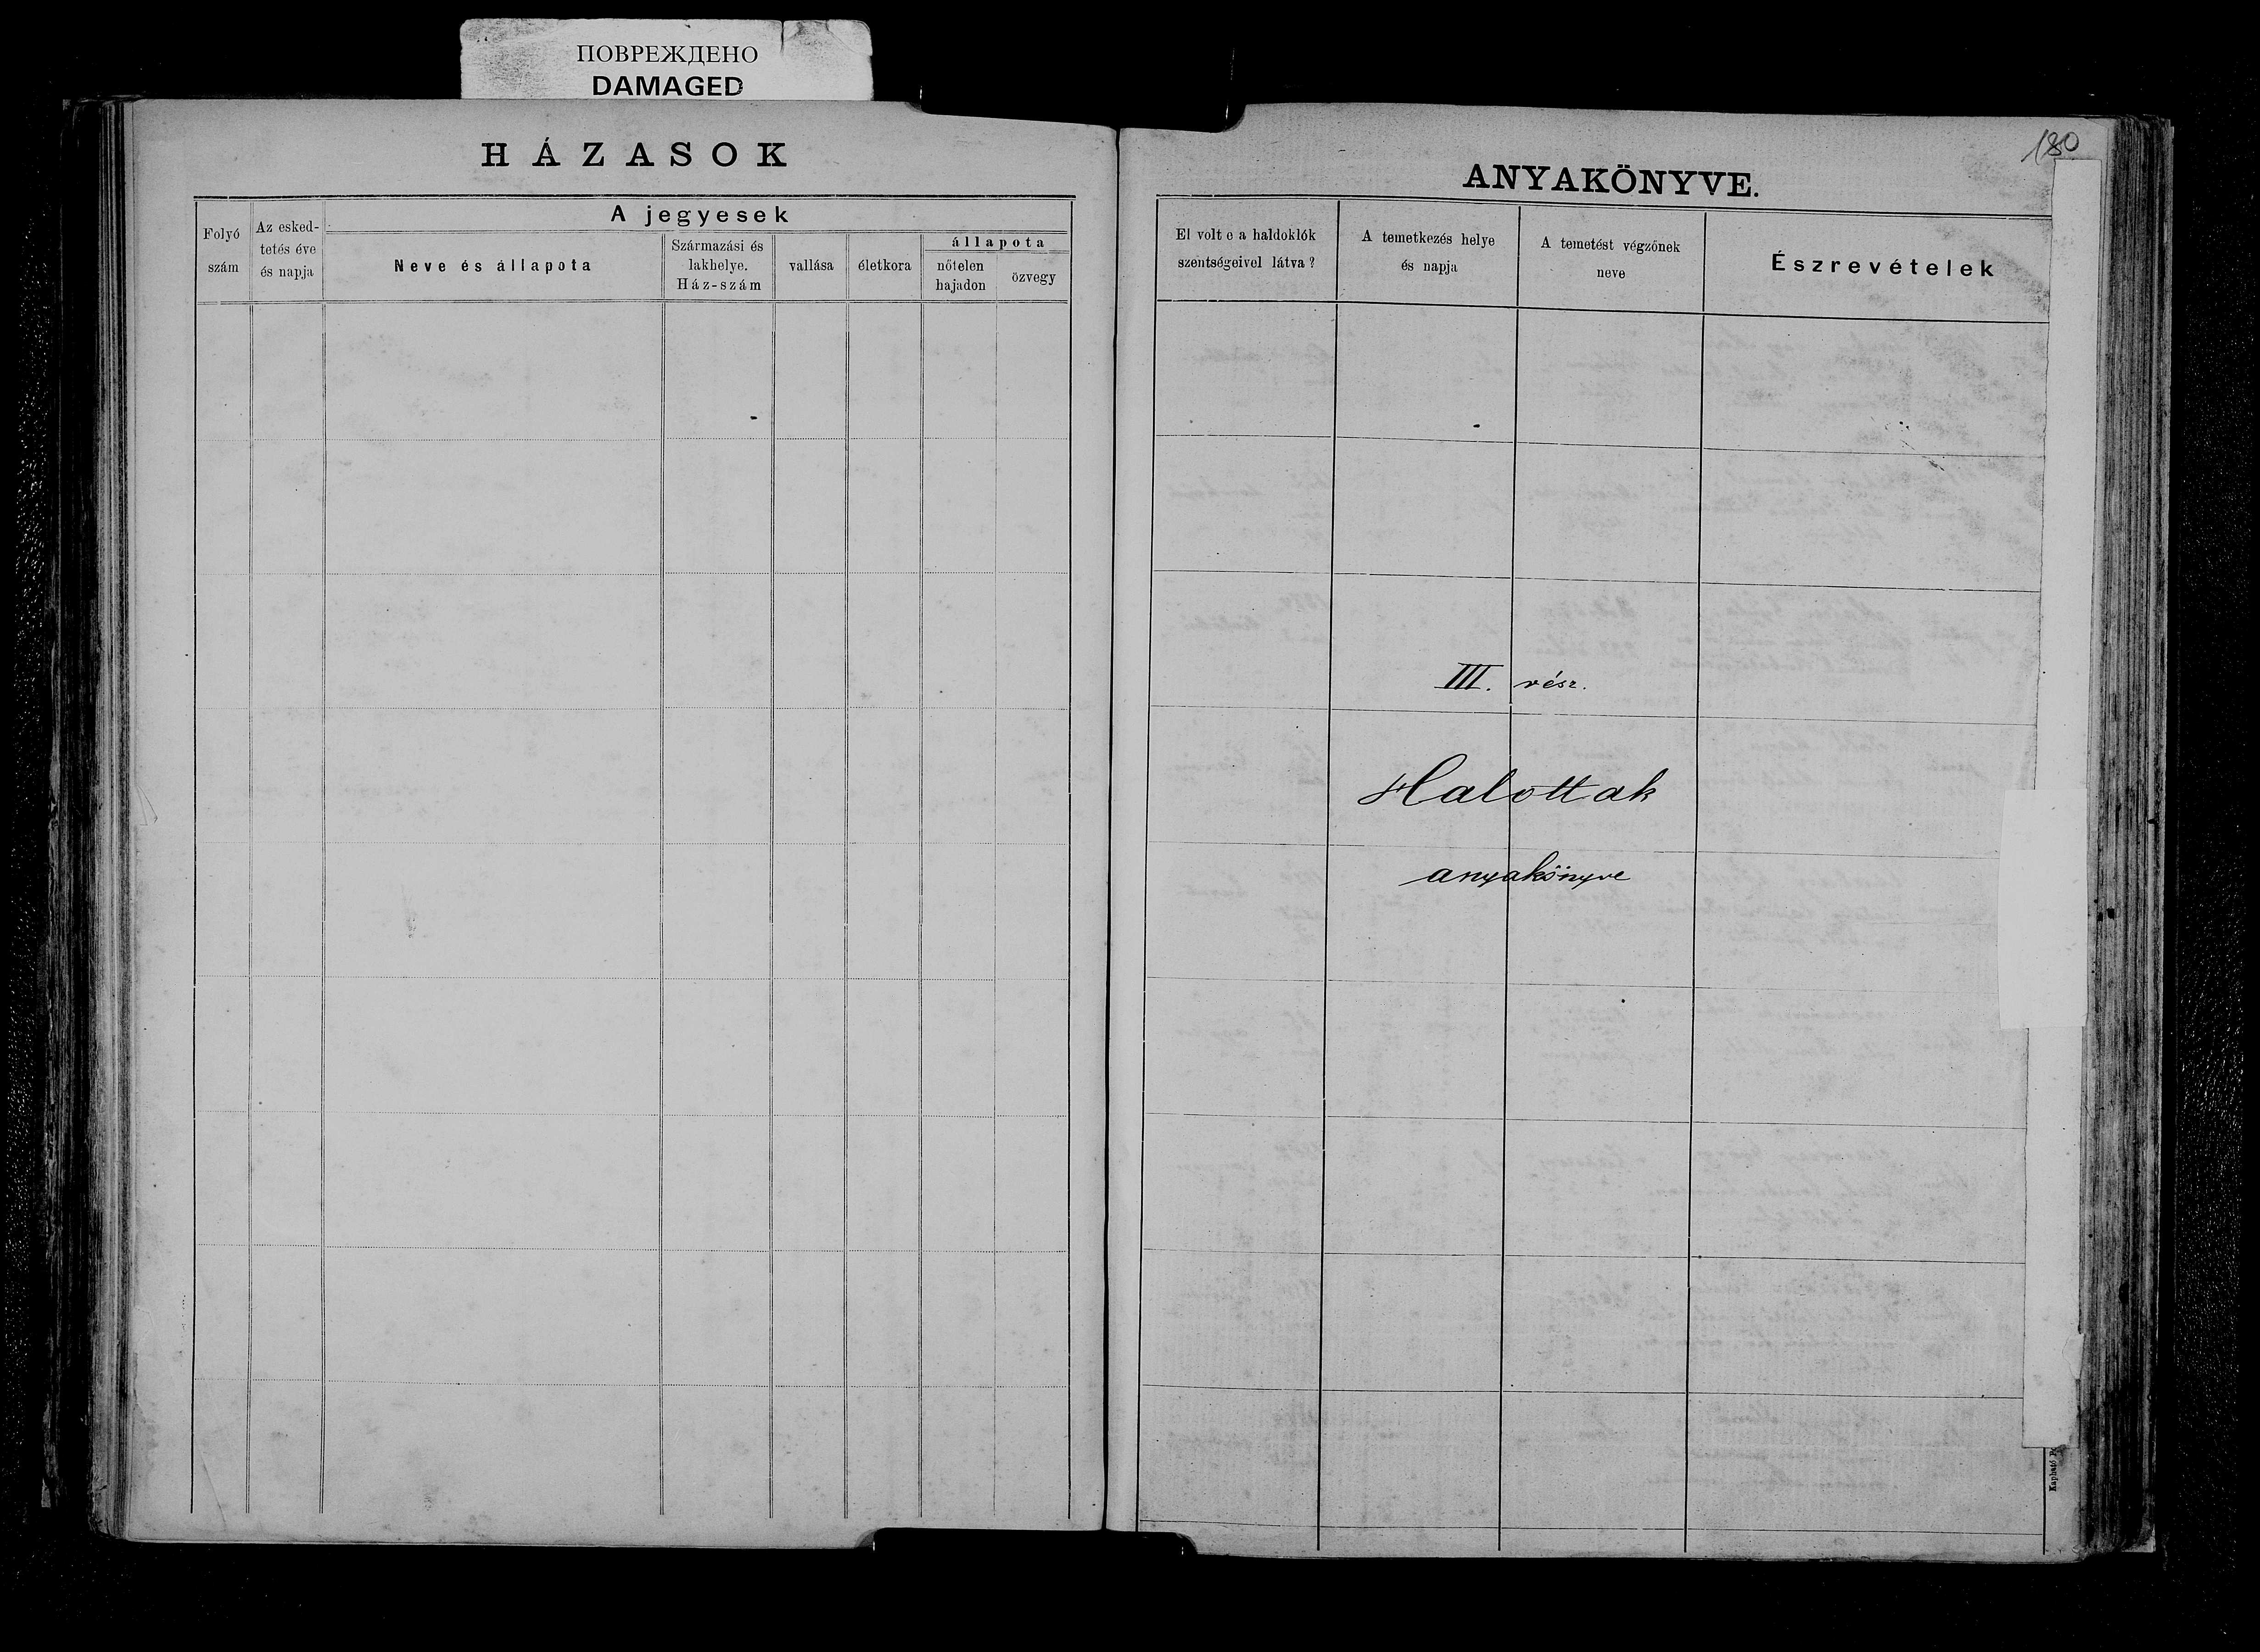 ПОВРЕЖДЕНО
DAMAGED
HÁZASOK
Folyó
szám
Az esked-
tetés éve
és napja
A jegyesek
Neve és állapota
Származási és
lakhelye.
Ház-szám
vallása
életkora
állapota
nőtelen
hajadon
özvegy
180
ANYAKÖNYVE.
El volt e a haldoklók
szentségeivel látva?
A temetkezés helye
és napja
A temetést végzőnek
neve
Észrevételek
III. rész.
Halottak
anyakönyve
Kapható